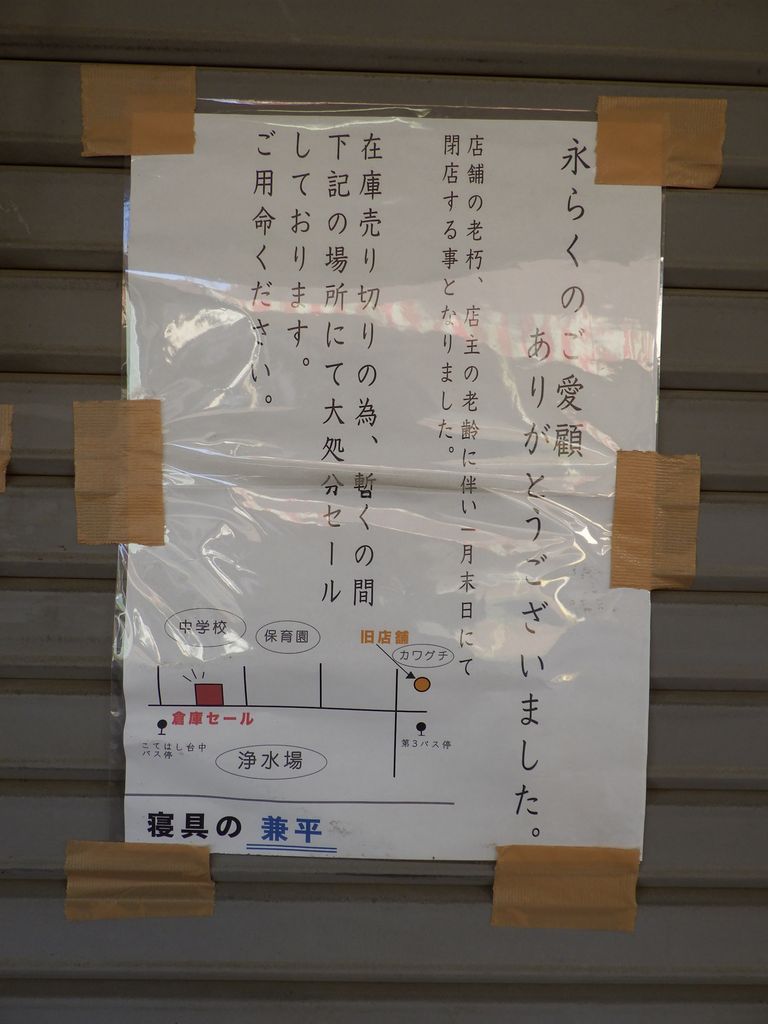 永らくのご愛顧
ありがとうございました。
店舗の老朽、店主の老齢に伴い一月末日にて
閉店する事となりました。
在庫売り切りの為、暫くの間
下記の場所にて大処分セール
しております。
ご用命ください。
中学校
保育園
旧店舗
カワグチ
倉庫セール
こてはし台中
バス停
第3バス停
浄水場
寝具の 兼平